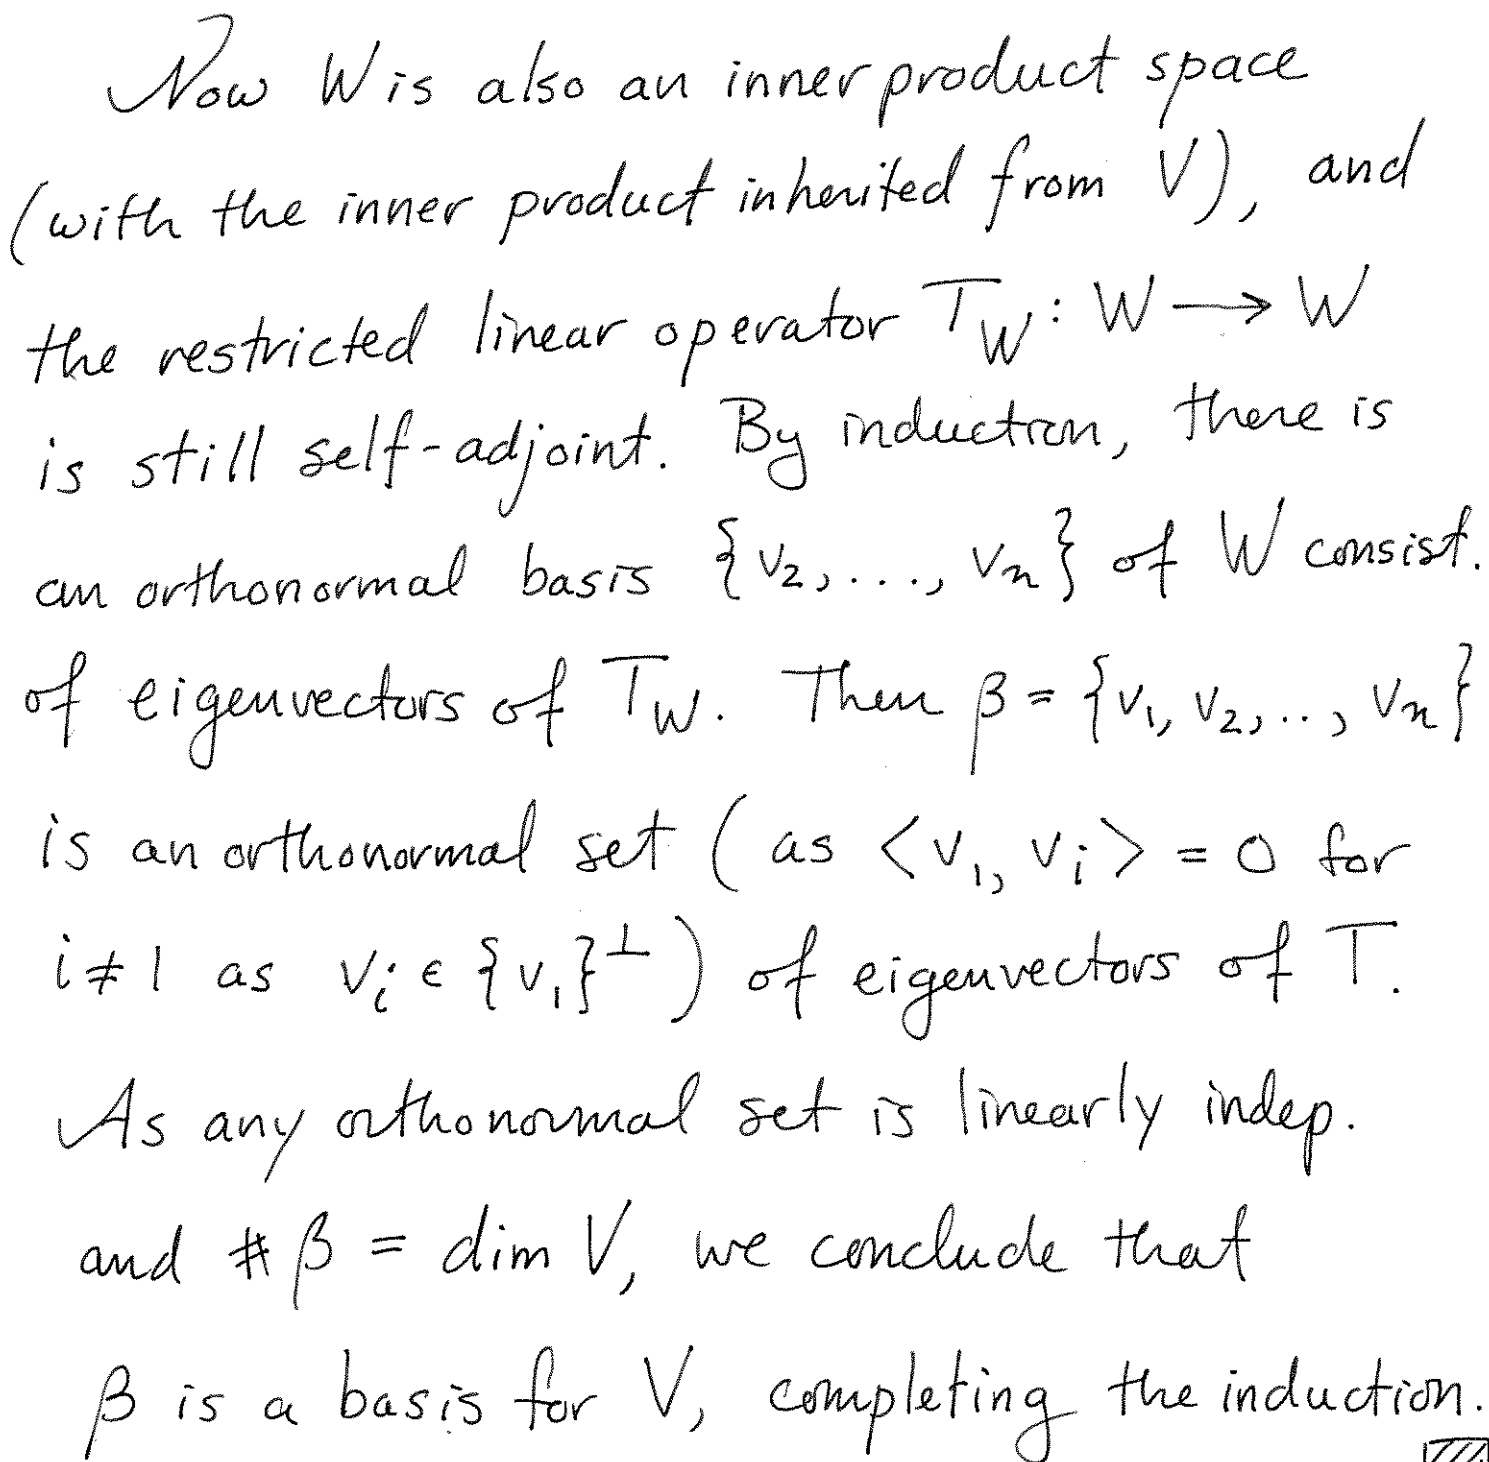 Now W is also an inner product space
(with the inner product inherited from V), and
the restricted linear operator T_W : W → W
is still self-adjoint. By induction, there is
an orthonormal basis {v₂, ..., vₙ} of W consist.
of eigenvectors of T_W. Then β = {v₁, v₂, .., vₙ}
is an orthonormal set (as <v₁, vᵢ> = 0 for
i ≠ 1 as vᵢ ∈ {v₁}^⊥) of eigenvectors of T.
As any orthonormal set is linearly indep.
and #β = dim V, we conclude that
β is a basis for V, completing the induction.